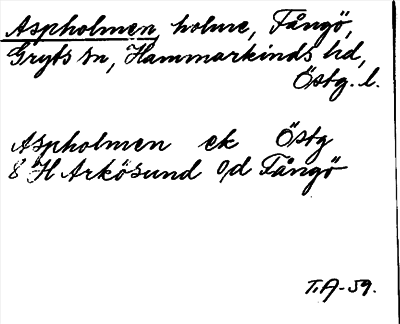 Aspholmen, holme, Fångö,
Gryts sn, Hammarkinds hd,
Östg. l.
Aspholmen ek Östg
8 H Arkösund o/d Fångö
T.A-59.